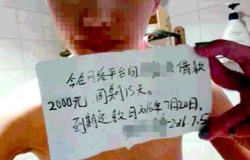 今在网络平台向 借款
2000元,周期15天。
到期还款日2016年7月20日,
2016 7.5